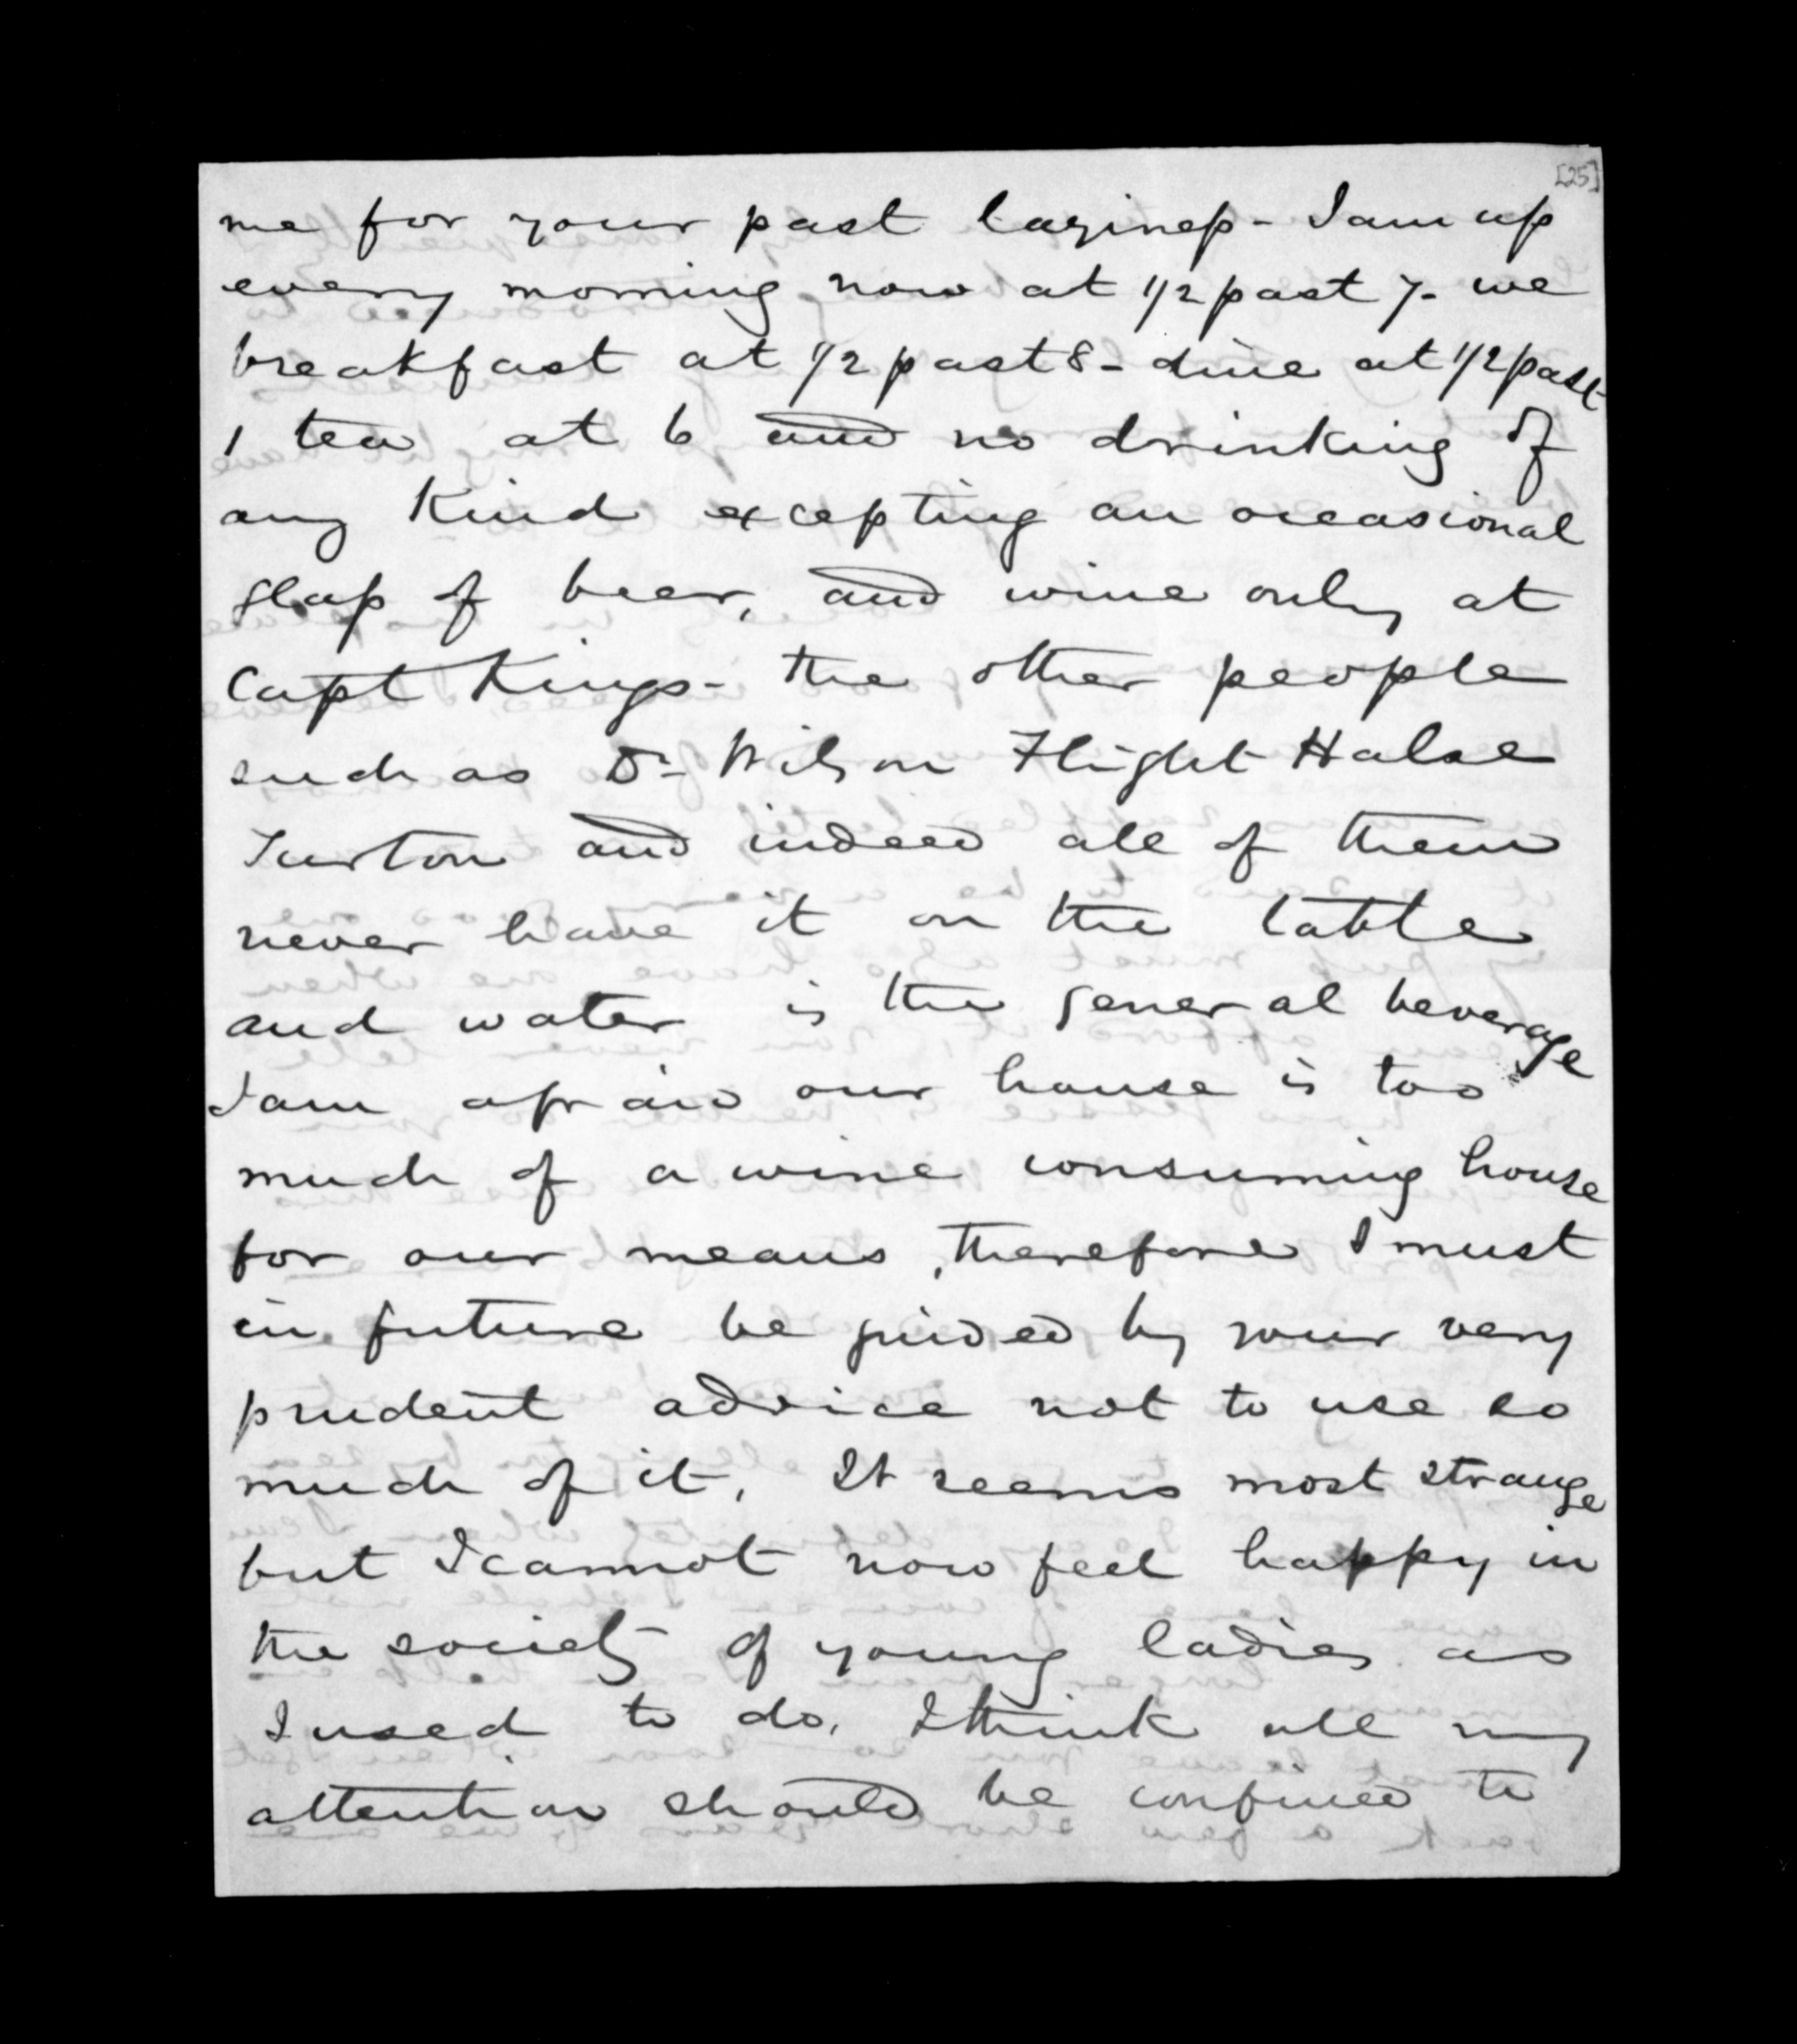 [25]
me for your past laziness - I am up
every morning now at 1/2 past 7 - we
breakfast at 1/2 past 8 - dine at 1/2 past
1 tea at 6 and no drinking of
any kind excepting an occasional
glass of beer, and wine only at
Capt Kings - the other people
such as Dr. Wilson Flight Halse
Turton and indeed all of them
never have it on the table
and water is the general beverage
I am afraid our house is too
much of a wine consuming house
for our means, therefore I must
in future be guided by your very
prudent advice not to use so
much of it. It seems most strange
but I cannot now feel happy in
the society of young ladies as
I used to do. I think all my
attention should be confined to